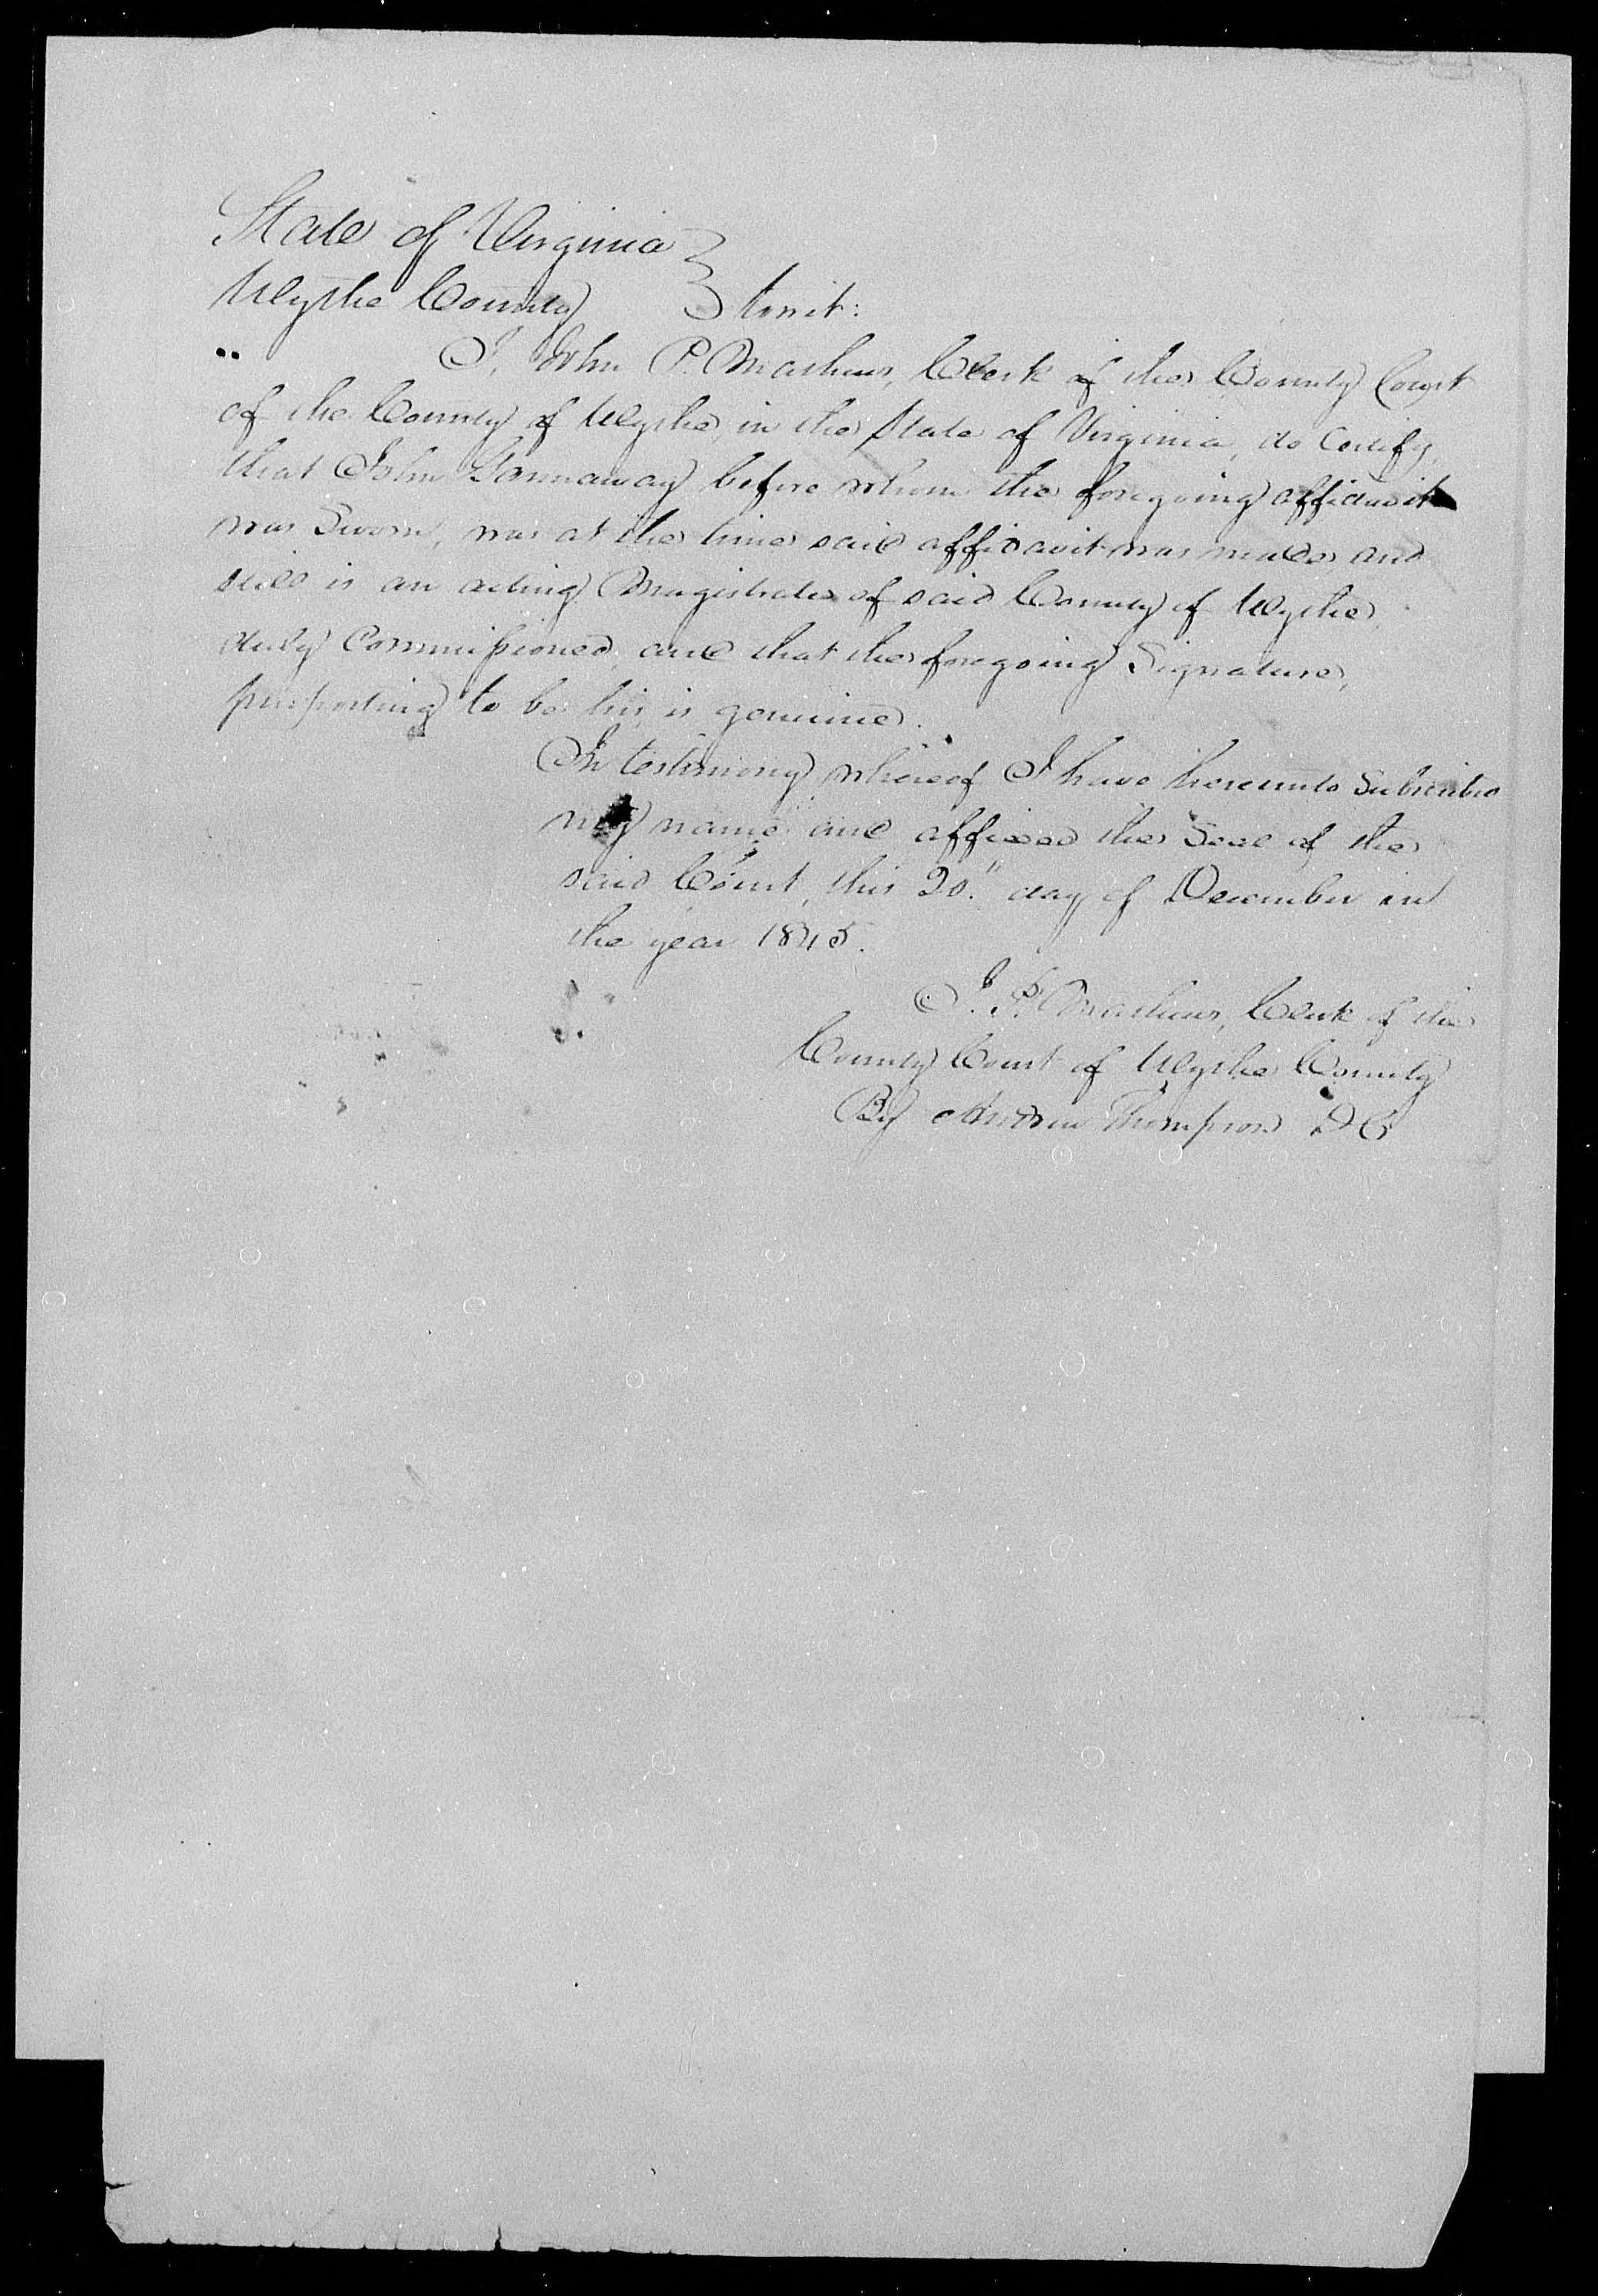 State of Virginia }
Wythe County } towit:
I, John P. Mathews, Clerk of the County Court
of the County of Wythe, in the State of Virginia, do Certify,
that John Gannaway before whom the foregoing affidavit
was Sworn, was at the time said affidavit was made and
still is an acting Magistrate of said County of Wythe,
duly Commissioned, and that the foregoing Signature,
purporting to be his, is genuine.
In testimony whereof I have hereunto Subscribed
my name and affixed the Seal of the
said Court, this 20." day of December in
the year 1845.
J. P. Mathews, Clerk of the
County Court of Wythe County
By Andrew Thompson D.C.